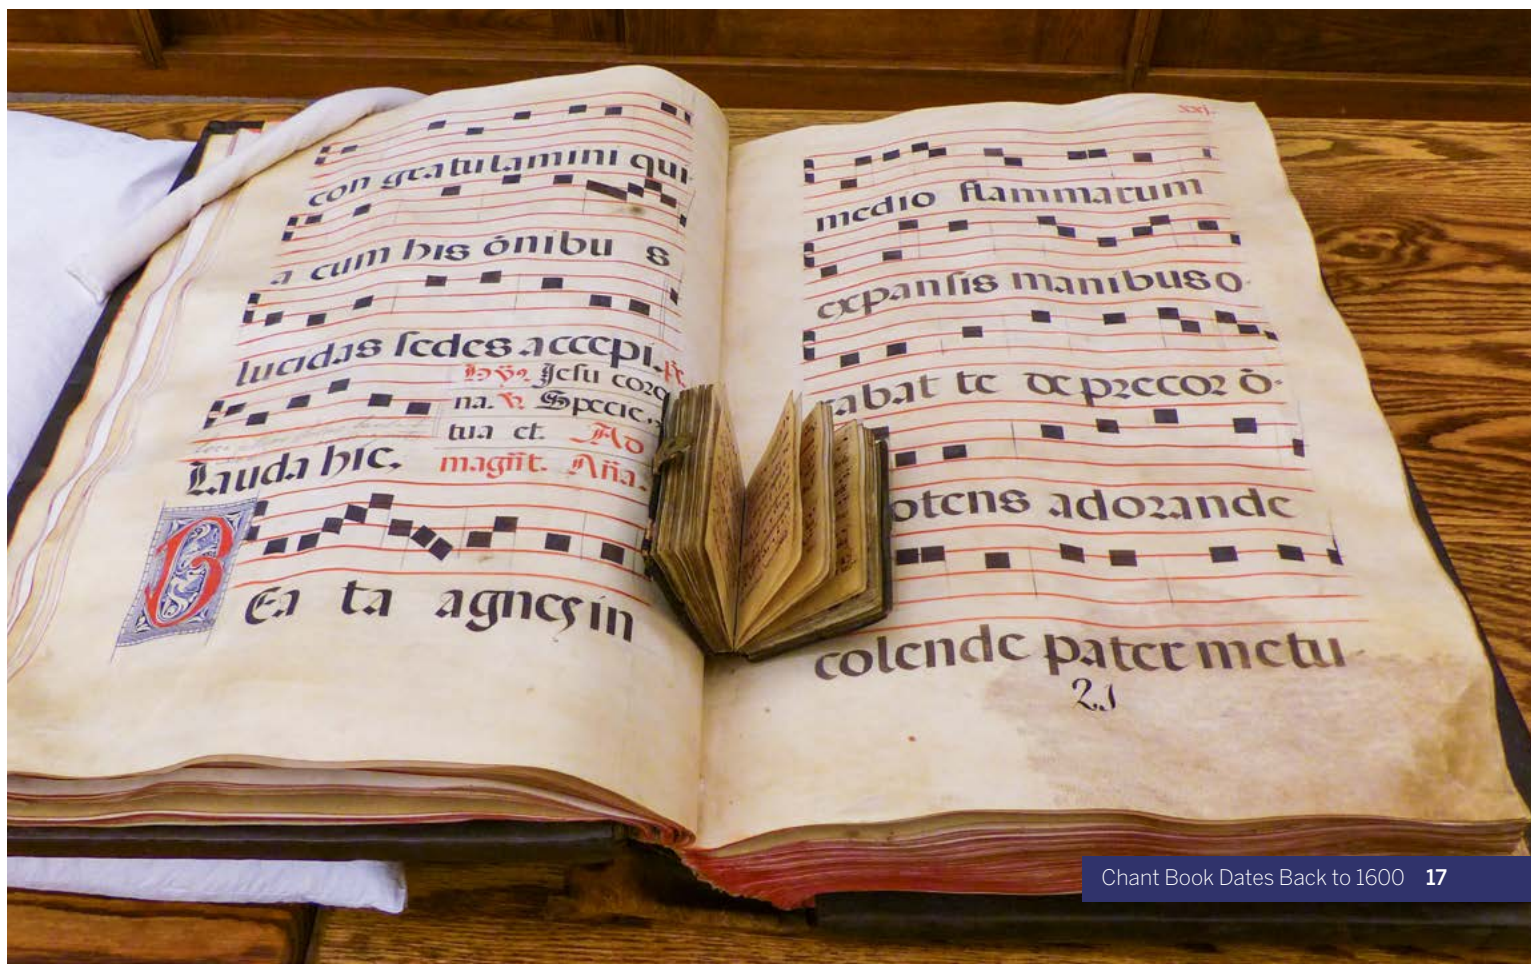 con gratulamini qui
a cum his õnibu s
lucidas sedes accepi.
Jesu coro
na. Specie
tua et. Ad
Lauda hic. magñt. Aña.
BEa ta agnes in
xxj.
medio flammarum
expansis manibus o
rabat te deprecor õ
potens adorande
colende pater metu
21
Chant Book Dates Back to 1600 17